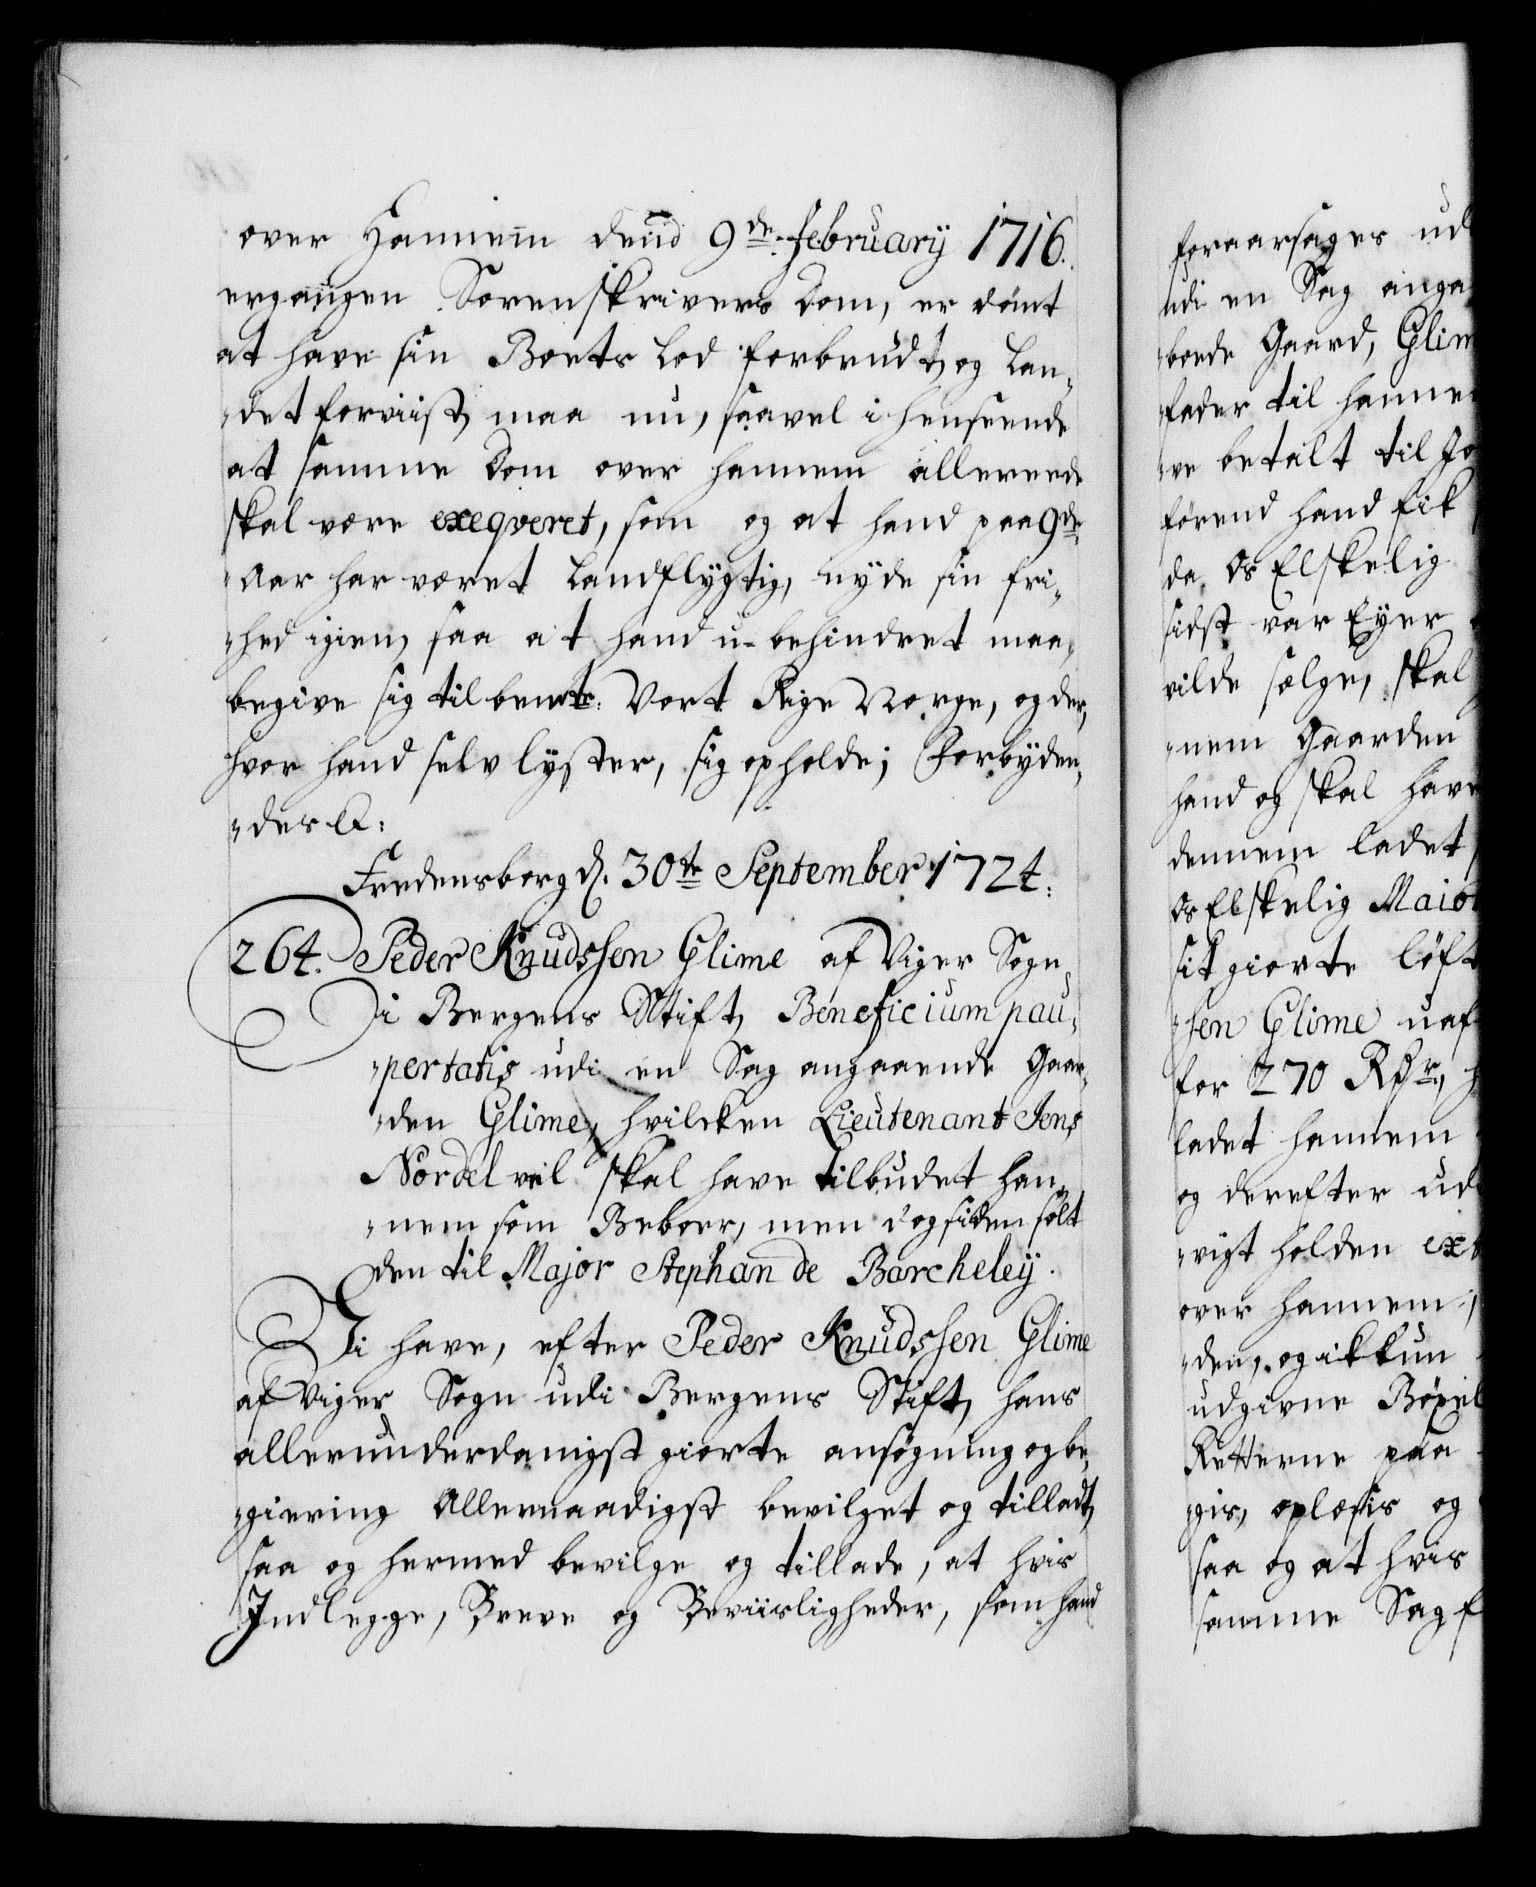 over Hannem dend 9de February 1716.
ergangen Sorenskrivers Dom, er dømt
at have sin Boets Lod forbrudt, og Lan-
det forviist, maa nu, saavel i henseende
at samme Dom over hannem allereede
skal være exeqveret, som og at hand paa 9de
Aar har været Landflygtig, nyde sin fri-
hed igien, saa at hand u-behindret maa
begive sig til bemte Vort Rige Norge, og der,
hvor hand selv lyster, sig opholde; Forbyden-
des &:
Fredensborg d. 30te September 1724.
264. Peder Knudssen Glime af Viger Sogn
i Bergens Stift, Beneficium pau-
pertatis udi en Sag angaaende Gaar-
den Glime, hvilcken Lieutenant Jens
Nordel vel skal have tilbudet han-
nem som Beboer, men dog siden solt
den til Major Stephan de Barcheleÿ.
Vi have, efter Peder Knudssen Glime
af Viger Sogn udi Bergens Stift, hans
allerunderdanigst giorte ansøgning og be-
giering Allernaadigst bevilget og tilladt,
saa og hermed bevilge og tillade, at hvis
Indlegge, Breve og Beviisligheder, som hand
foraarsages ud
udi en Sag anga
boede Gaard, Glim
fader til hannem
ve betalt til Jo
førend hand fik
da Os Elskelig
sidst var Eyer
vilde sælge, skal
nem Gaarden
hand og skal have
dennem ladet
Os Elskelig Maior
sit giorte løft
sen Glime uaf
for 270 Rdr,
ladet hannem
og derefter ud
vigt holden ext
over hannem,
den, og ikkun
udgivne Bøxel
Retterne paa
gis, oplæsis og
saa og at hvis
samme Sag f